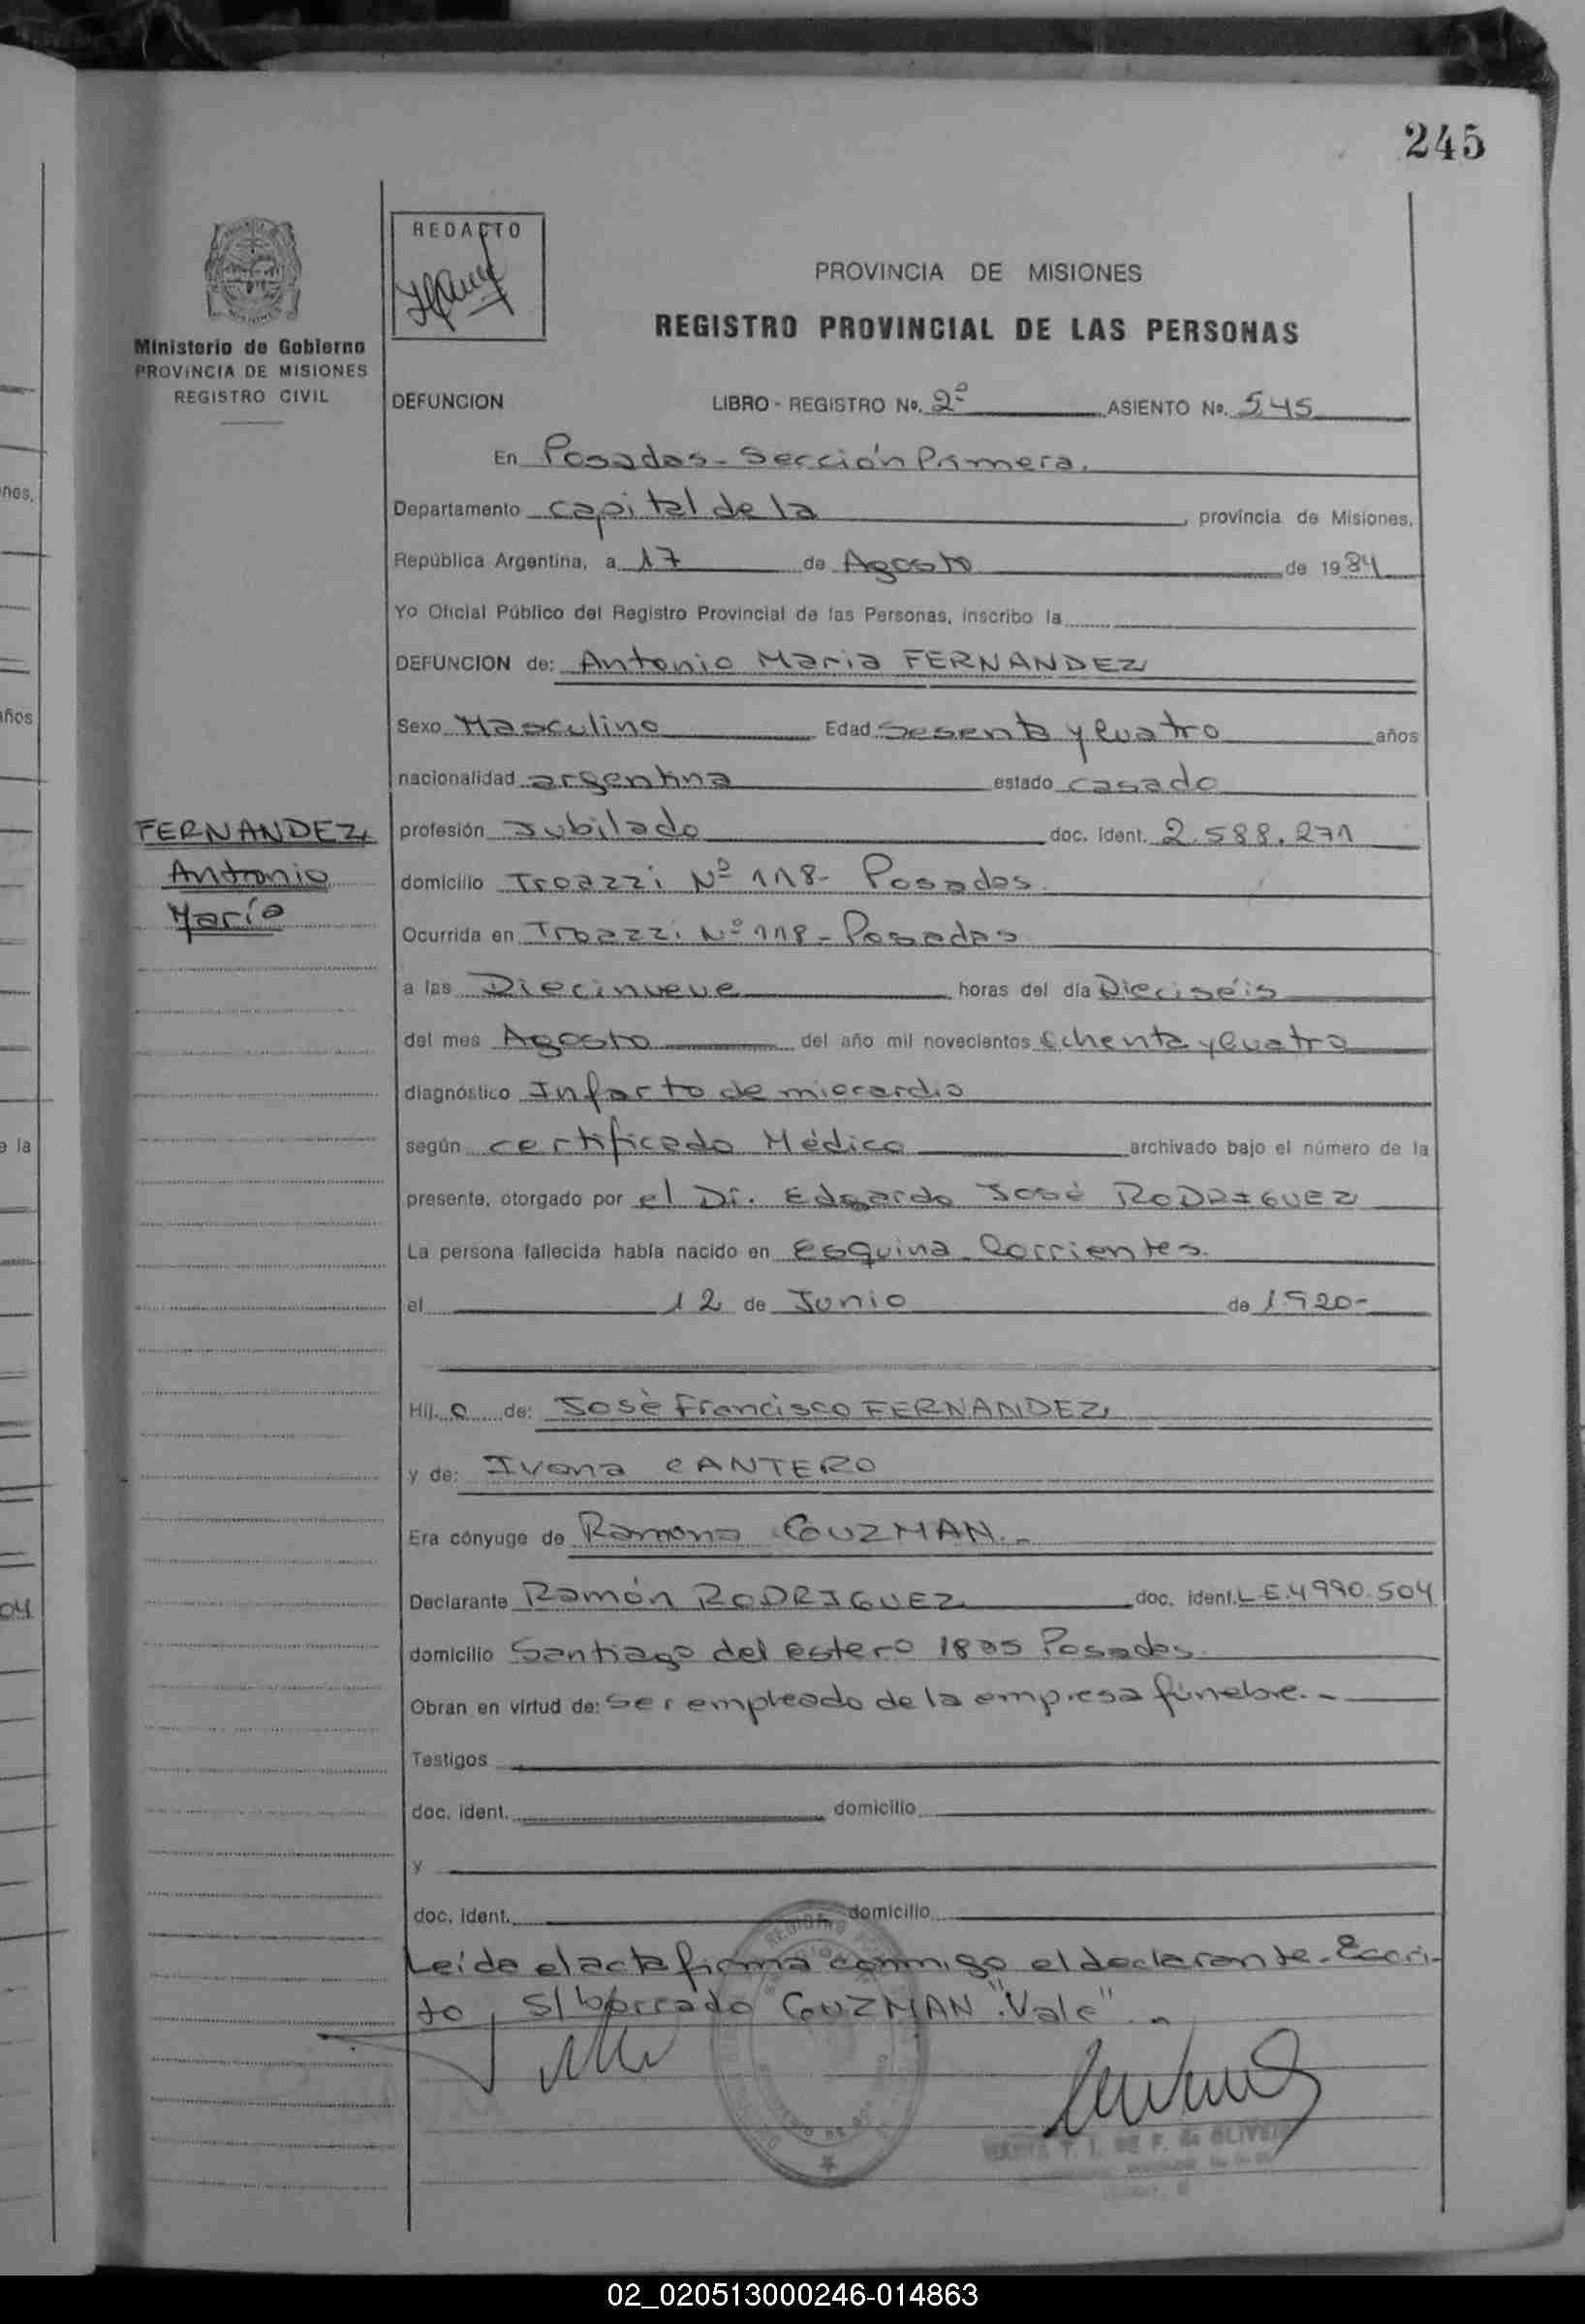 245
REDACTO
PROVINCIA DE MISIONES
REGISTRO PROVINCIAL DE LAS PERSONAS
Ministerio de Gobierno
PROVINCIA DE MISIONES
REGISTRO CIVIL
DEFUNCION LIBRO - REGISTRO Nº. 2º ASIENTO Nº. 545
En Posadas - Sección Primera.
Departamento capital de la , provincia de Misiones,
República Argentina, a 17 de Agosto de 1984
Yo Oficial Público del Registro Provincial de las Personas, inscribo la
DEFUNCION de: Antonio Maria FERNANDEZ
Sexo Masculino Edad Sesenta y Cuatro años
nacionalidad argentina estado casado
FERNANDEZ
Antonio
María
profesión Jubilado doc. ident. 2.588.271
domicilio Troazzi Nº 118- Posadas
Ocurrida en Troazzi Nº 118 - Posadas
a las Diecinueve horas del día Dieciséis
del mes Agosto del año mil novecientos Ochenta y Cuatro
diagnóstico Infarto de miocardio
según certificado Médico archivado bajo el número de la
presente, otorgado por el Dr. Edgardo José RODRIGUEZ
La persona fallecida había nacido en Esquina Corrientes.
el 12 de Junio de 1920-
Hij o de: José Francisco FERNANDEZ
y de: Ivona CANTERO
Era cónyuge de Ramona GUZMAN.-
Declarante Ramón RODRIGUEZ doc. ident. L.E.4990.504
domicilio Santiago del estero 1835 Posadas
Obran en virtud de: Ser empleado de la empresa fúnebre.-
Testigos
doc. ident. domicilio
y
doc. ident. domicilio
Leída el acta firma conmigo el declarante - Escri-
to, S/ borrado GUZMAN "Vale".-
nes,
años
e la
04
02_020513000246-014863